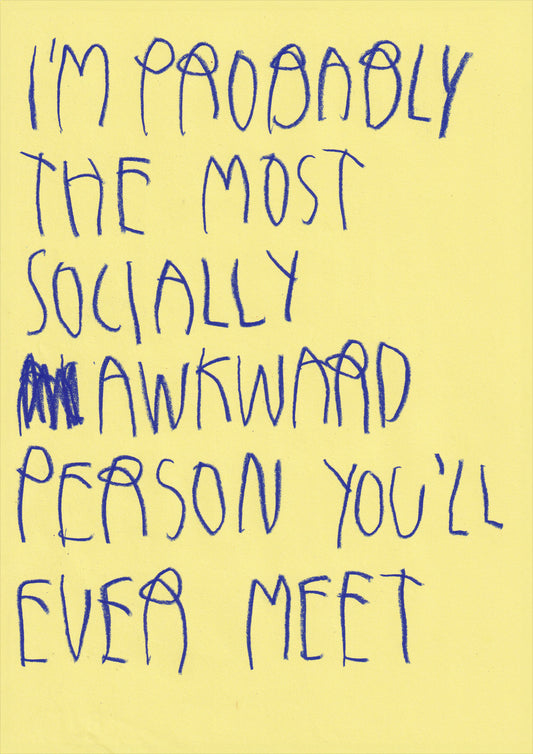 I'M PROBABLY
THE MOST
SOCIALLY
AWKWARD
PERSON YOU'LL
EVER MEET